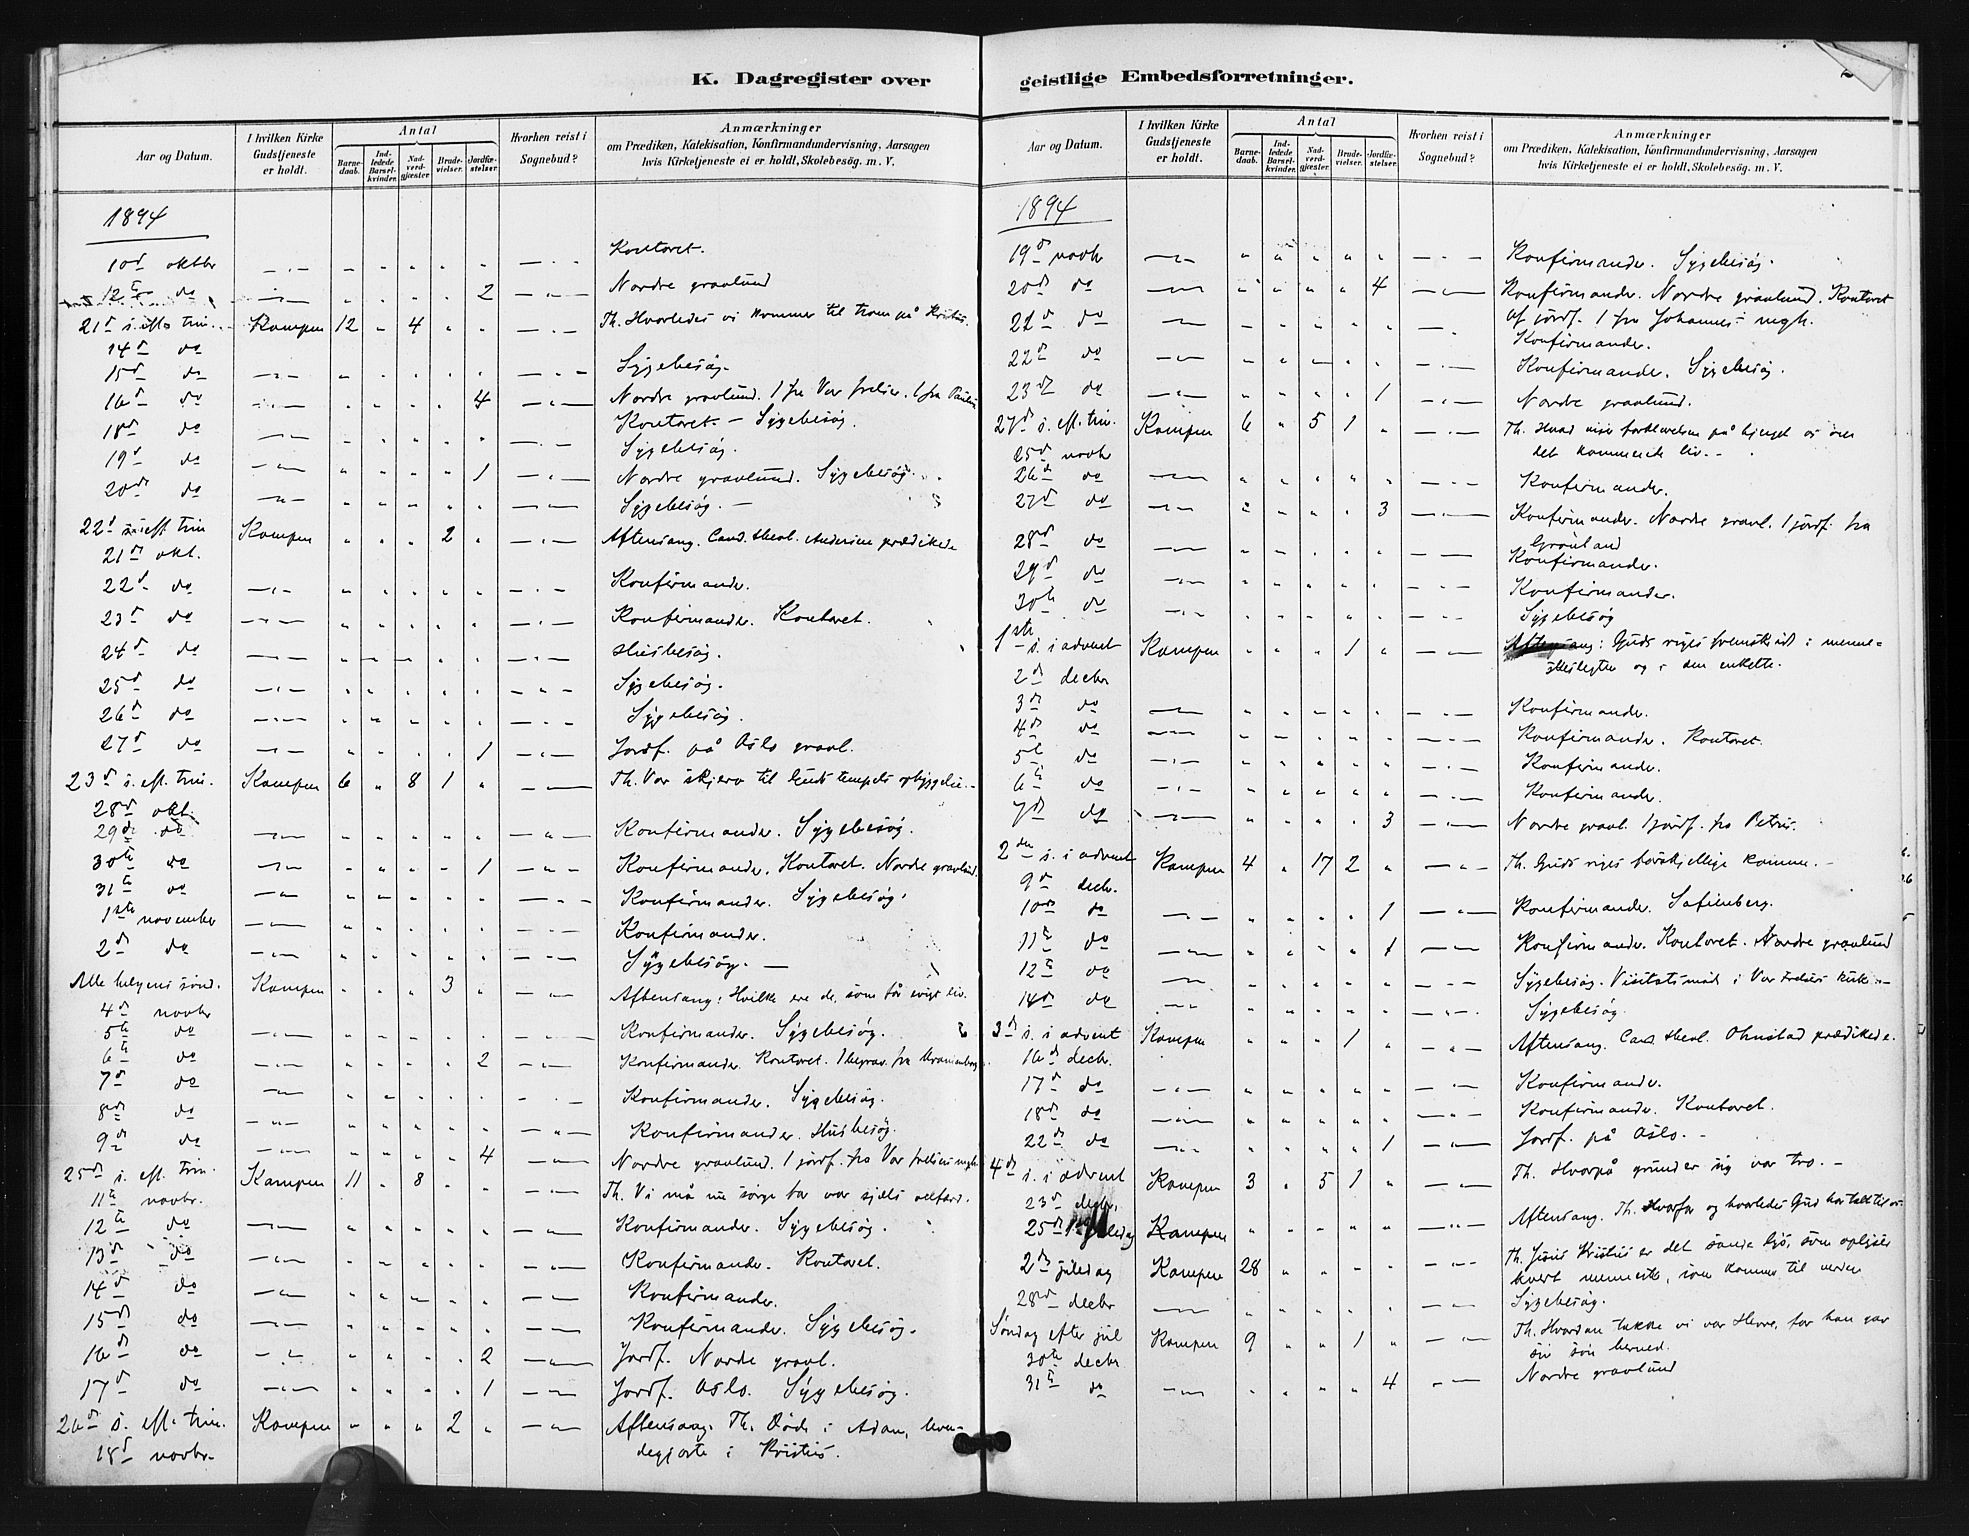 K. Dagregister over
Aar og Datum.
I hvilken Kirke Gudstjeneste er holdt.
Antal
Barne-daab.
Ind-ledede Barsel-kvinder.
Nad-verd-gjæster
Brude-vielser.
Jordfæ-stelser.
Hvorhen reist i Sognebud?
Anmærkninger
om Prædiken, Katekisation, Konfirmandundervisning, Aarsagen
hvis Kirketjeneste ei er holdt, Skolebesøg. m. V.
1894
10d oktbr Kontoret.
12te do 2 Nordre gravlund
21d s. eft. trin. Kampen 12 " 4 Th. Hvorledes vi kommer til troen på Kristus.
14d do
15d do Sygebesøg.
16d do 4 Nordre gravlund. 1 fra Vor frelser. 1 fra Paulus
18d do Kontoret. - Sygebesøg.
19d do Sygebesøg.
20de do 1 Nordre gravlund. Sygebesøg.
Sygebesøg. -
22d s. eft. trin Kampen 2 Aftensang. Cand. theol. Andersen prædikede
21de okt.
22d do Konfirmander.
23d do Konfirmander. Kontoret.
24d do Husbesøg.
25d do Sygebesøg.
26d do Sygebesøg.
27d do 1 Jordf. på Oslo gravl.
23d s. eft. trin. Kampen 6 " 8 1 Th. Vor skjerv til Guds tempels opbyggelse.
28de okt.
29de do Konfirmander. Sygebesøg.
30te do 1 Konfirmander. Kontoret. Nordre gravlund.
31te do Konfirmander. Sygebesøg.
1ste november Konfirmander.
2d do Sygebesøg. -
Alle helgens sønd. Kampen 3 Aftensang: Hvilke ere de, som får evigt liv.
4d novbr
5te do Konfirmander. Sygebesøg.
6te do 2 Konfirmander. Kontoret. 1 begrav. fra Uranienborg
7d do Konfirmander. Sygebesøg.
8de do Konfirmander. Husbesøg.
9de do 4 Nordre gravlund. 1 jordf. fra Vor frelsers mgh.
25de s. eft. trin. Kampen 11 " 8 Th. Vi må nu sørge for vor sjæls velfærd.
11te novbr.
12te do Konfirmander. Sygebesøg.
13de do Konfirmander. Kontoret.
14d do Konfirmander.
15de do Konfirmander. Sygebesøg.
16de do 2 Jordf. Nordre gravl.
17d do 1 Jordf. Oslo. Sygebesøg.
26de s. eft. trin. Kampen 2 Aftensang. Th. Døde i Adam, leven-
18d novbr. degjorte i Kristus.
geistlige Embedsforretninger.
Aar og Datum.
I hvilken Kirke Gudstjeneste er holdt.
Antal
Barne-daab.
Ind-ledede Barsel-kvinder.
Nad-verd-gjæster
Brude-vielser.
Jordfæ-stelser.
Hvorhen reist i Sognebud?
Anmærkninger
om Prædiken, Katekisation, Konfirmandundervisning, Aarsagen
hvis Kirketjeneste ei er holdt, Skolebesøg. m. V.
1894
19d novbr Konfirmander. Sygebesøg.
20de do 4 Konfirmander. Nordre gravlund. Kontoret
af jordf. 1 fra Johannes mgh.
21d do Konfirmander.
22d do Konfirmander. Sygebesøg.
23de do 1 Nordre gravlund.
27d s. eft. trin. Kampen 6 " 5 1 Th. Hvad viser forklarelsen på bjerget os om
25d novbr det kommende liv.
26de do Konfirmander.
27d do 3 Konfirmander. Nordre gravl. 1 jordf. fra
Grønland
28de do Konfirmander.
29d do Konfirmander.
30te do Sygebesøg
1ste s. i advent Kampen 1 Aftensang: Guds riges fremskridt i menne-
skeslegten og i den enkelte.
2d decbr
3d do Konfirmander.
4de do Konfirmander. Kontoret.
5te do Konfirmander.
6te do Konfirmander.
7de do 3 Nordre gravl. 1 jordf. fra Petrus.
2den s. i advent Kampen 4 " 17 2 Th. Guds riges forskjellige komme. -
9de decbr.
10de do 1 Konfirmander. Sofienberg.
11te do 1 Konfirmander. Kontoret. Nordre gravlund
12te do Sygebesøg. Visitatsmøde i Vor Frelsers kirke
14de do Sygebesøg.
3d s. i advent Kampen 1 Aftensang. Cand. theol. Ohnstad prædikede.
16de decbr.
17d do Konfirmander.
18d do Konfirmander. Kontoret.
22de do 1 Jordf. på Oslo. -
4de s. i advent Kampen 3 " 5 1 Th. Hvorpå grunder sig vor tro. -
23d decbr.
25d 1ste juledag Kampen Aftensang. Th. Hvorfor og hvorledes Gud har talt til os.
2den juledag Kampen 28 Th. Jesus Kristus er det sande lys, som oplyser
hvert menneske, som kommer til verden
28de decbr Sygebesøg.
Søndag efter jul Kampen 9 1 Th. Hvordan takke vi vor Herre, for han gav
30te decbr sin søn herned.
31te do 4 Nordre gravlund